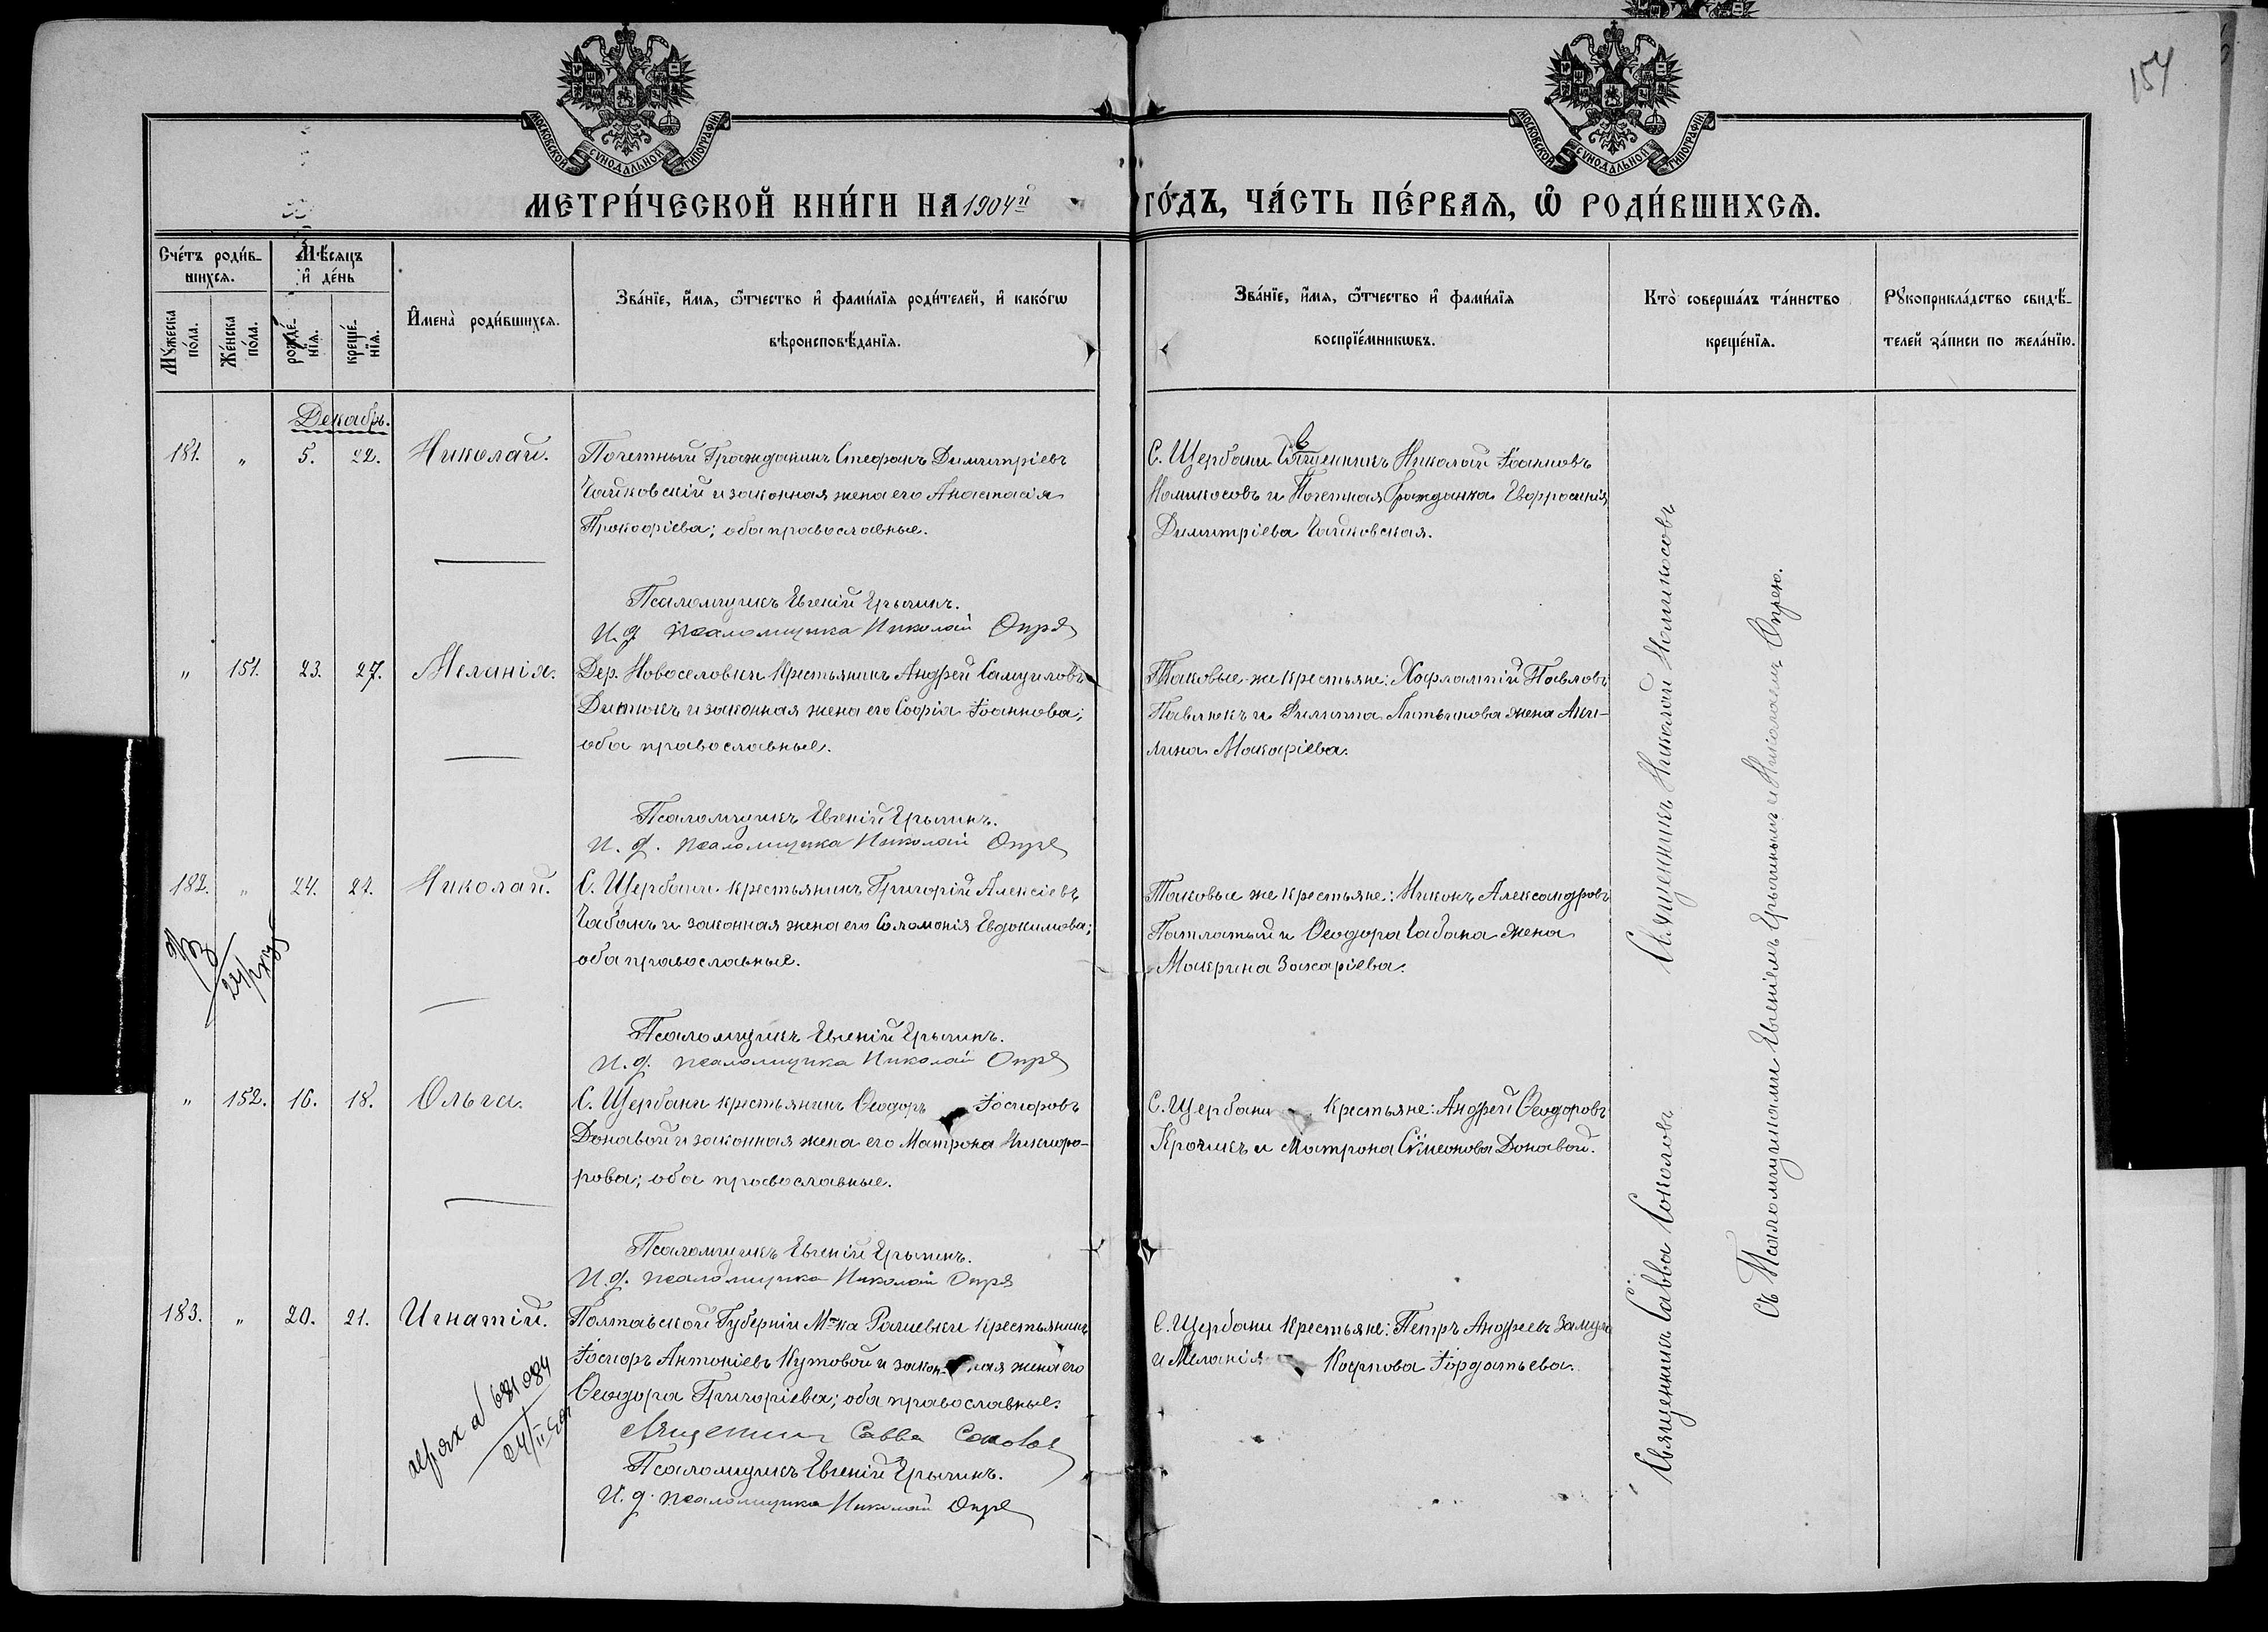 154
МОСКОВСКОЙ СѴНОДАЛЬНОЙ ТИПОГРАФІИ
МОСКОВСКОЙ СѴНОДАЛЬНОЙ ТИПОГРАФІИ
МЕТРИ́ЧЕСКОЙ КНИ́ГИ НА 1904й ГО́ДЪ, ЧА́СТЬ ПЕ́РВАѦ, Ѽ РОДИ́ВШИХСѦ.
Сче́тъ роди́в-
шихсѧ.
Мꙋжеска по́ла.
Же́нска по́ла.
Мѣ́сяцъ
и҆ де́нь
рожде́-
нїѧ.
креще́-
нїѧ.
И҆мена̀ роди́вшихсѧ.
Зва́нїе, и҆́мѧ, ѻ҆́тчество и҆ фами́лїѧ роди́телей, и҆ како́гѡ
вѣроисповѣ́данїѧ.
Зва́нїе, и҆́мѧ, ѻ҆́тчество и҆ фами́лїѧ
воспрїе́мникѡвъ.
Кто̀ соверша́лъ та́инство
креще́нїѧ.
Рꙋкоприкла́дство свидѣ́-
телей за́писи по жела́нїю.
Декабрь.
181. „ 5. 22. Николай.
Почетный Гражданинъ Стефанъ Димитріевъ
Чайковскій и законная жена его Анастасія
Прокофіева; оба православные.
С. Щербани Священникъ Николай Іоанновъ
Номикосовъ и Почетная Гражданка Евфросинія
Димитріева Чайковская.
Псаломщикъ Евгеній Ерыгинъ.
И. д. псаломщика Николай Опря
„ 151. 23. 27. Меланія.
Дер. Новоселовки Крестьянинъ Андрей Самуиловъ
Дитюкъ и законная жена его Софія Іоаннова;
оба православные.
Таковые же крестьяне: Харлампій Павловъ
Павлюкъ и Филиппа Литвинова жена Аки-
лина Макаріева.
Псаломщикъ Евгеній Ерыгинъ.
И. д. псаломщика Николай Опря
182. „ 24. 27. Николай.
С. Щербани крестьянинъ Григорій Алексіевъ
Чабанъ и законная жена его Соломонія Евдокимова;
оба православные.
Таковые же крестьяне: Никонъ Александровъ
Патлатый и Ѳеодора Чабана жена
Макрина Захаріева.
Псаломщикъ Евгеній Ерыгинъ.
И. д. псаломщика Николай Опря
„ 152. 16. 18. Ольга.
С. Щербани крестьянинъ Ѳеодоръ Іосифовъ
Доновой и законная жена его Матрона Никифо-
рова; оба православные.
С. Щербани крестьяне: Андрей Ѳеодоровъ
Крочикъ и Матрона Симеонова Доновой.
Псаломщикъ Евгеній Ерыгинъ.
И. д. псаломщика Николай Опря
183. „ 20. 21. Игнатій.
Полтавской Губерніи М-ка Рашевки Крестьянинъ
Іосифъ Антоніевъ Кутовой и законная жена его
Ѳеодора Григоріева; оба православные.
С. Щербани крестьяне: Петръ Андреевъ Замула
и Меланія Карпова Гордатьева.
681084
Священникъ Савва Соколов
Псаломщикъ Евгеній Ерыгинъ.
И. д. псаломщика Николай Опря
Священникъ Николай Номикосовъ
Священникъ Савва Соколовъ
съ Псаломщиками Евгеніемъ Ерыгинымъ и Николаемъ Опрею.